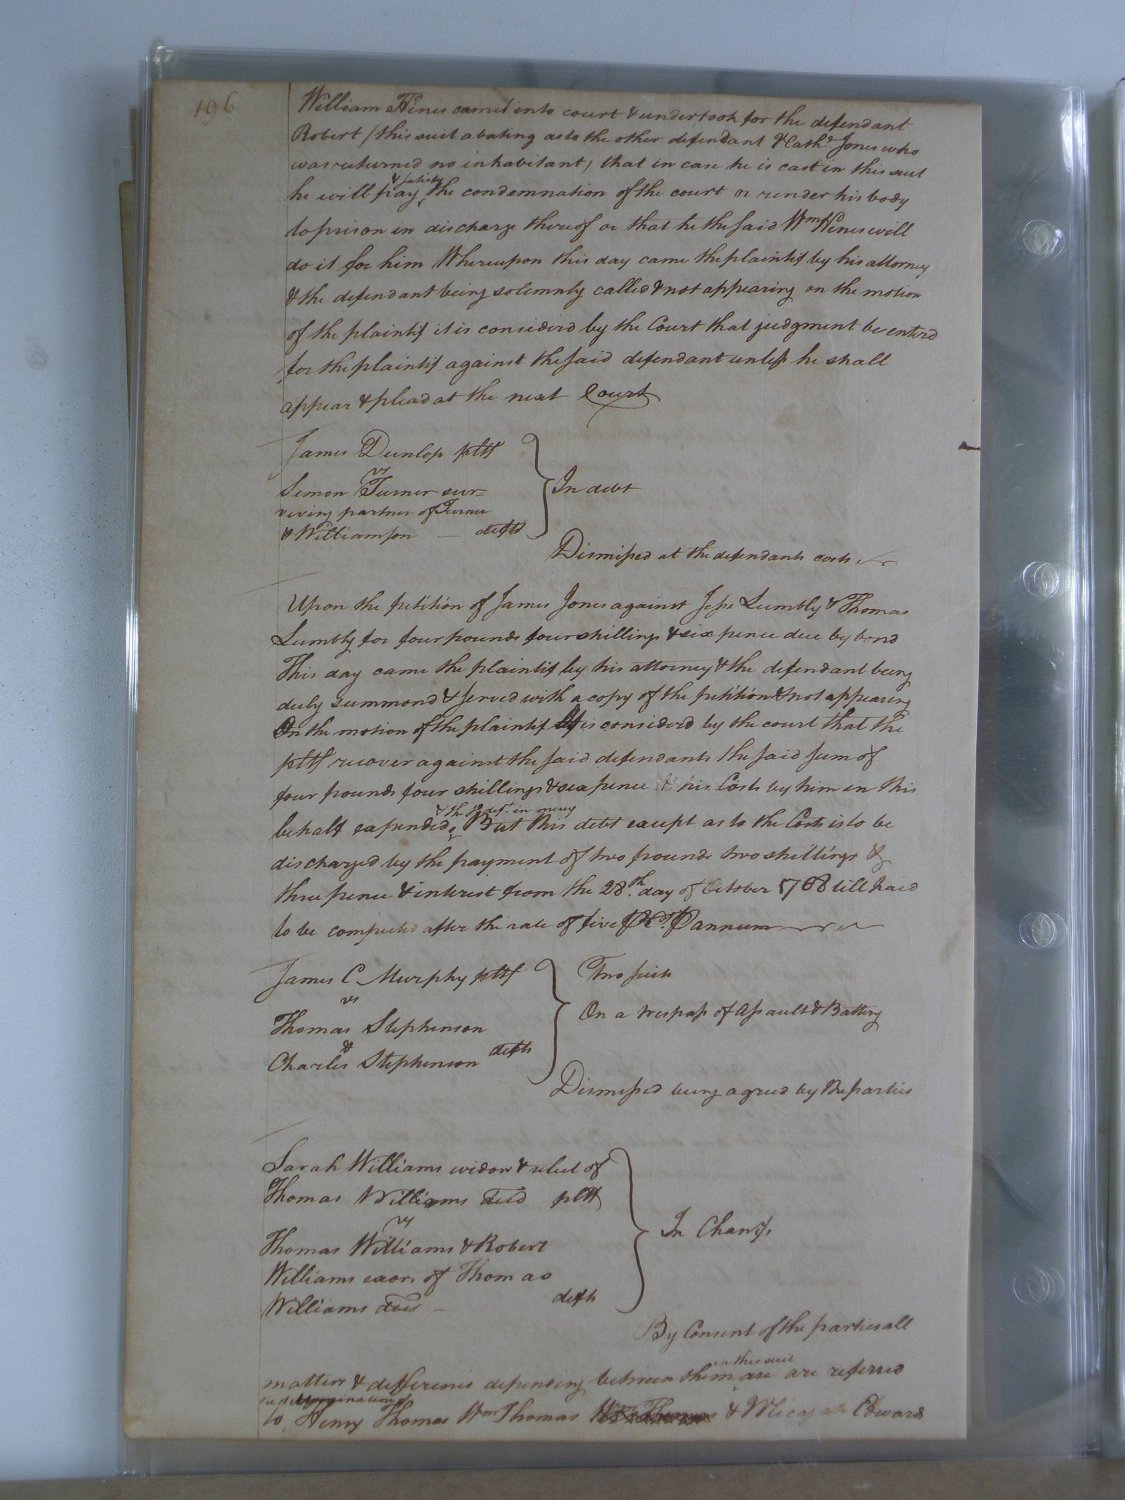 196
William Hines came into court & undertook for the defendant
Robert (this suit abating as to the other defendant Jones who
was returned no inhabitant) that in case he is cast in this suit
& satisfy
he will pay the condemnation of the court or render his body
to prison in discharge thereof or that he the said Wm Hines will
do it for him Whereupon this day came the plaintif by his attorney
& the defendant being solemnly called & not appearing on the motion
of the plaintif it is considerd by the Court that judgment be enterd
for the plaintif against the said defendant unless he shall
appear & plead at the next Court
James Dunlop pltf
vs
Simon Turner sur=
viving partner of Turner
& Williamson defts
In debt
Dismissed at the defendants costs
Upon the petition of James Jones against Jesse Lumbly & Thomas
Lumbly for four pounds four shillings & six pence due by bond
This day came the plaintif by his attorney & the defendant being
duly summond & served with a copy of the petition & not appearing
On the motion of the plaintif It is considerd by the court that the
pltf recover against the said defendants the said sum of
four pounds four shillings & six pence & his Costs by him in this
& the sd deft. in mercy
behalf expended, But this debt except as to the Costs is to be
discharged by the payment of two pounds two shillings &
three pence & interest from the 28th day of October 1768 till paid
to be computed after the rate of five P Ct. P annum
James C Murphy pltf
vs
Thomas Stephenson
&
Charles Stephenson defts
Two suits
On a trespass of Assault & Battery
Dismissed being agreed by the parties
Sarah Williams widow & relict of
Thomas Williams decd pltf
vs
Thomas Williams & Robert
Williams exors of Thomas
Williams decd defts
In Chancy
By Consent of the parties all
in this suit
matters & differences depending between them are are referred
to Henry Thomas Wm Thomas & Micajah Edwards